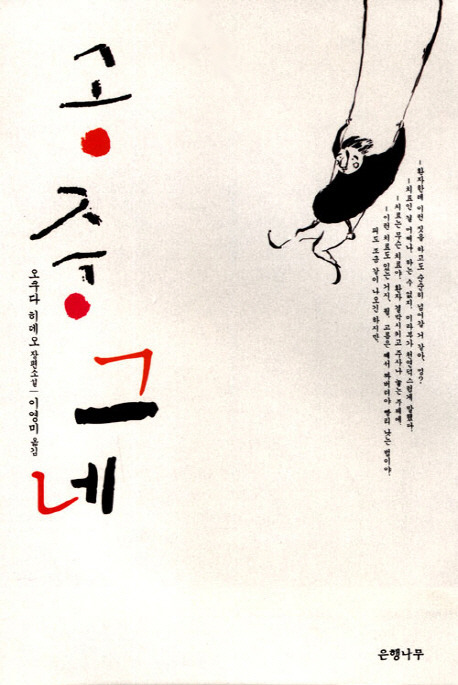 공중그네
오쿠다 히데오 장편소설 | 이영미 옮김
－환자한테 이런 짓을 하고도 순순히 넘어갈 거 같아, 엉?
－치료인 걸 어쩌나, 하는 수 없지. 이라부가 천연덕스럽게 말했다.
－치료는 무슨 치료야. 환자 결박시키고 주사나 놓는 주제에.
－이런 치료도 있는 거지, 뭘. 고름은 째서 짜버려야 빨리 낫는 법이야.
피도 조금 같이 나오긴 하지만.
은행나무